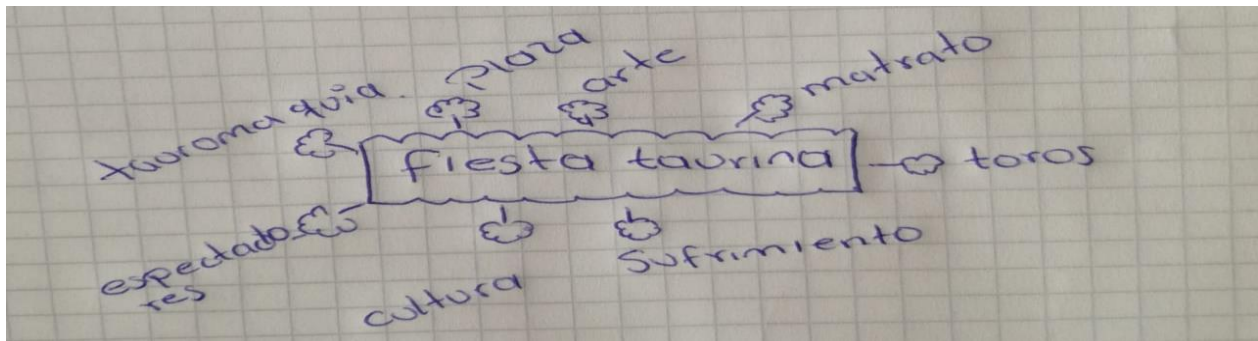 tauromaquia.
Plaza
arte
matrato
fiesta taurina
toros
espectado
res
cultura
sufrimiento